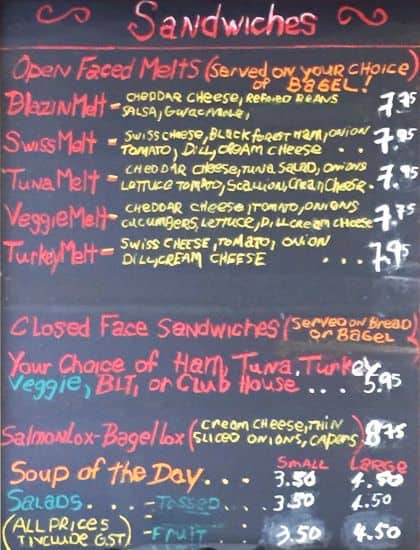 Sandwiches
Open Faced Melts (Served on your choice
of Bagel!
Blazin Melt - Cheddar Cheese, Refried Beans
Salsa, Guacamole, 7.75
Swiss Melt - Swiss Cheese, Black Forest Ham, Onion
Tomato, Dill, Cream Cheese . . 7.95
Tuna Melt - Cheddar Cheese, Tuna Salad, Onions
Lettuce Tomato, Scallion, Cream Cheese. 7.95
Veggie Melt - Cheddar Cheese, Tomato, Onions
Cucumbers, Lettuce, Dill Cream Cheese 7.75
Turkey Melt - Swiss Cheese, Tomato, Onion
Dill, Cream Cheese ... 7.95
Closed Face Sandwiches (Served on Bread
or Bagel)
Your Choice of Ham, Tuna, Turkey
Veggie, BLT, or Club House ... 5.95
Salmon Lox-Bagel Lox (Cream Cheese, Thin
Sliced Onions, Capers) 8.75
Small Large
Soup of the Day... 3.50 4.50
Salads.... - Tossed... 3.50 4.50
(All Prices
Include GST) - Fruit.. 3.50 4.50